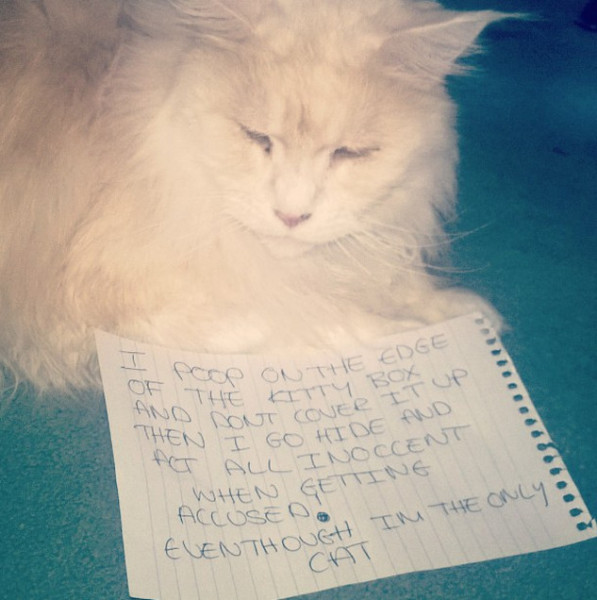 I POOP ON THE EDGE
OF THE KITTY BOX
AND DONT COVER IT UP
THEN I GO HIDE AND
ACT ALL INOCCENT
WHEN GETTING
ACCUSED.
EVENTHOUGH IM THE ONLY
CAT